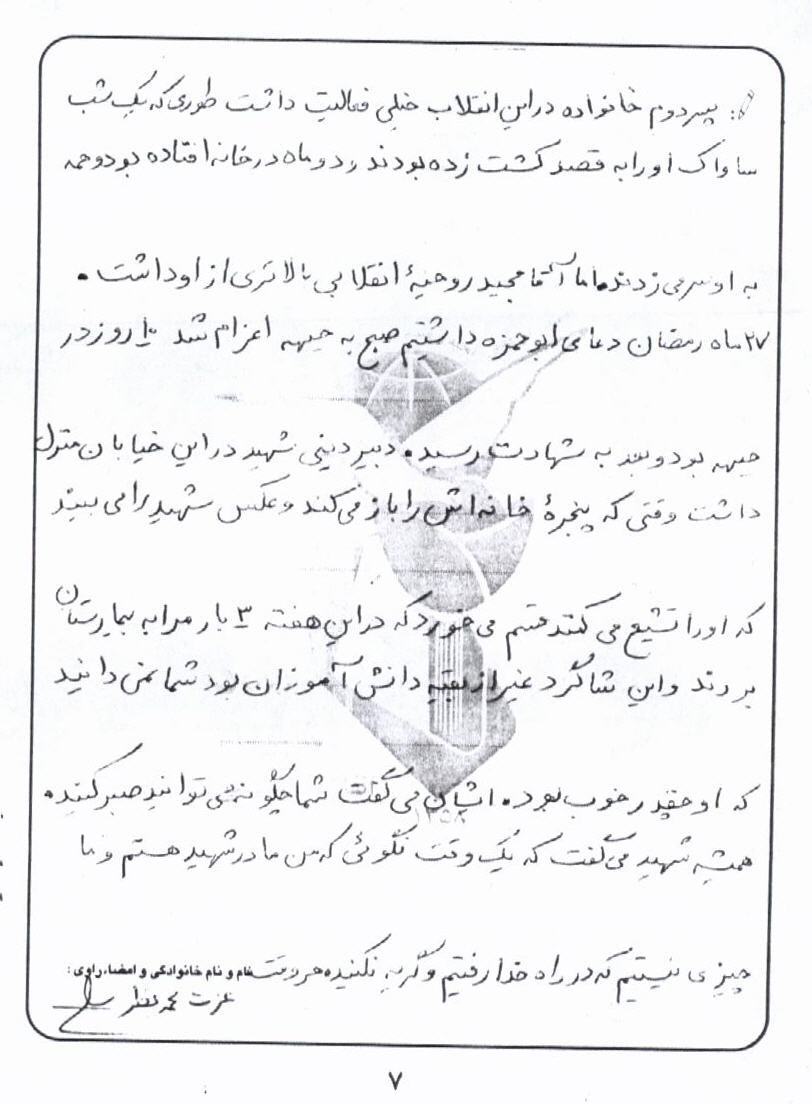 ج: پسر دوم خانواده در این انقلاب خیلی فعالیت داشت طوری که یک شب
ساواک او را به قصد کشت زده بودند و دو ماه در خانه افتاده بود و همه
به او سر می زدند. اما آقا مجید روحیهٔ انقلابی بالاتری از او داشت.
۲۷ ماه رمضان دعای ابوحمزه داشتیم صبح به جبهه اعزام شد ۱۰ روز در
جبهه بود و بعد به شهادت رسید. دبیر دینی شهید در این خیابان منزل
داشت وقتی که پنجرهٔ خانه اش را باز می کند و عکس شهید را می بیند
که او را تشیع می کنند قسم می خورد که در این هفته ۳ بار مرا به بیمارستان
بردند و این شاگرد غیر از بقیه دانش آموزان بود شما نمی دانید
که او چقدر خوب بود. ایشان می گفت شما چگونه می توانید صبر کنید.
همیشه شهید می گفت که یک وقت نگوئی که من مادر شهید هستم و ما
چیزی نیستیم که در راه خدا رفتیم و گریه نکنید هر وقت
نام و نام خانوادگی و امضاء راوی:
عزت
۷